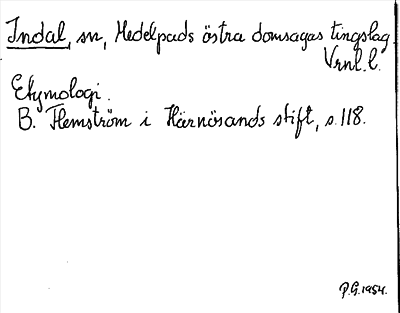 Indal, sn, Medelpads östra domsagas tingslag.
Vrnl. l.
Etymologi.
B. Flemström i Härnösands stift, s. 118.
P.G. 1954.